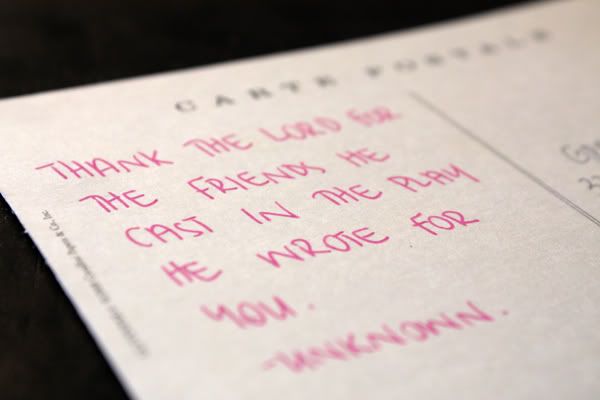 CARTE POSTALE
THANK THE LORD FOR
THE FRIENDS HE
CAST IN THE PLAY
HE WROTE FOR
YOU.
-UNKNOWN.